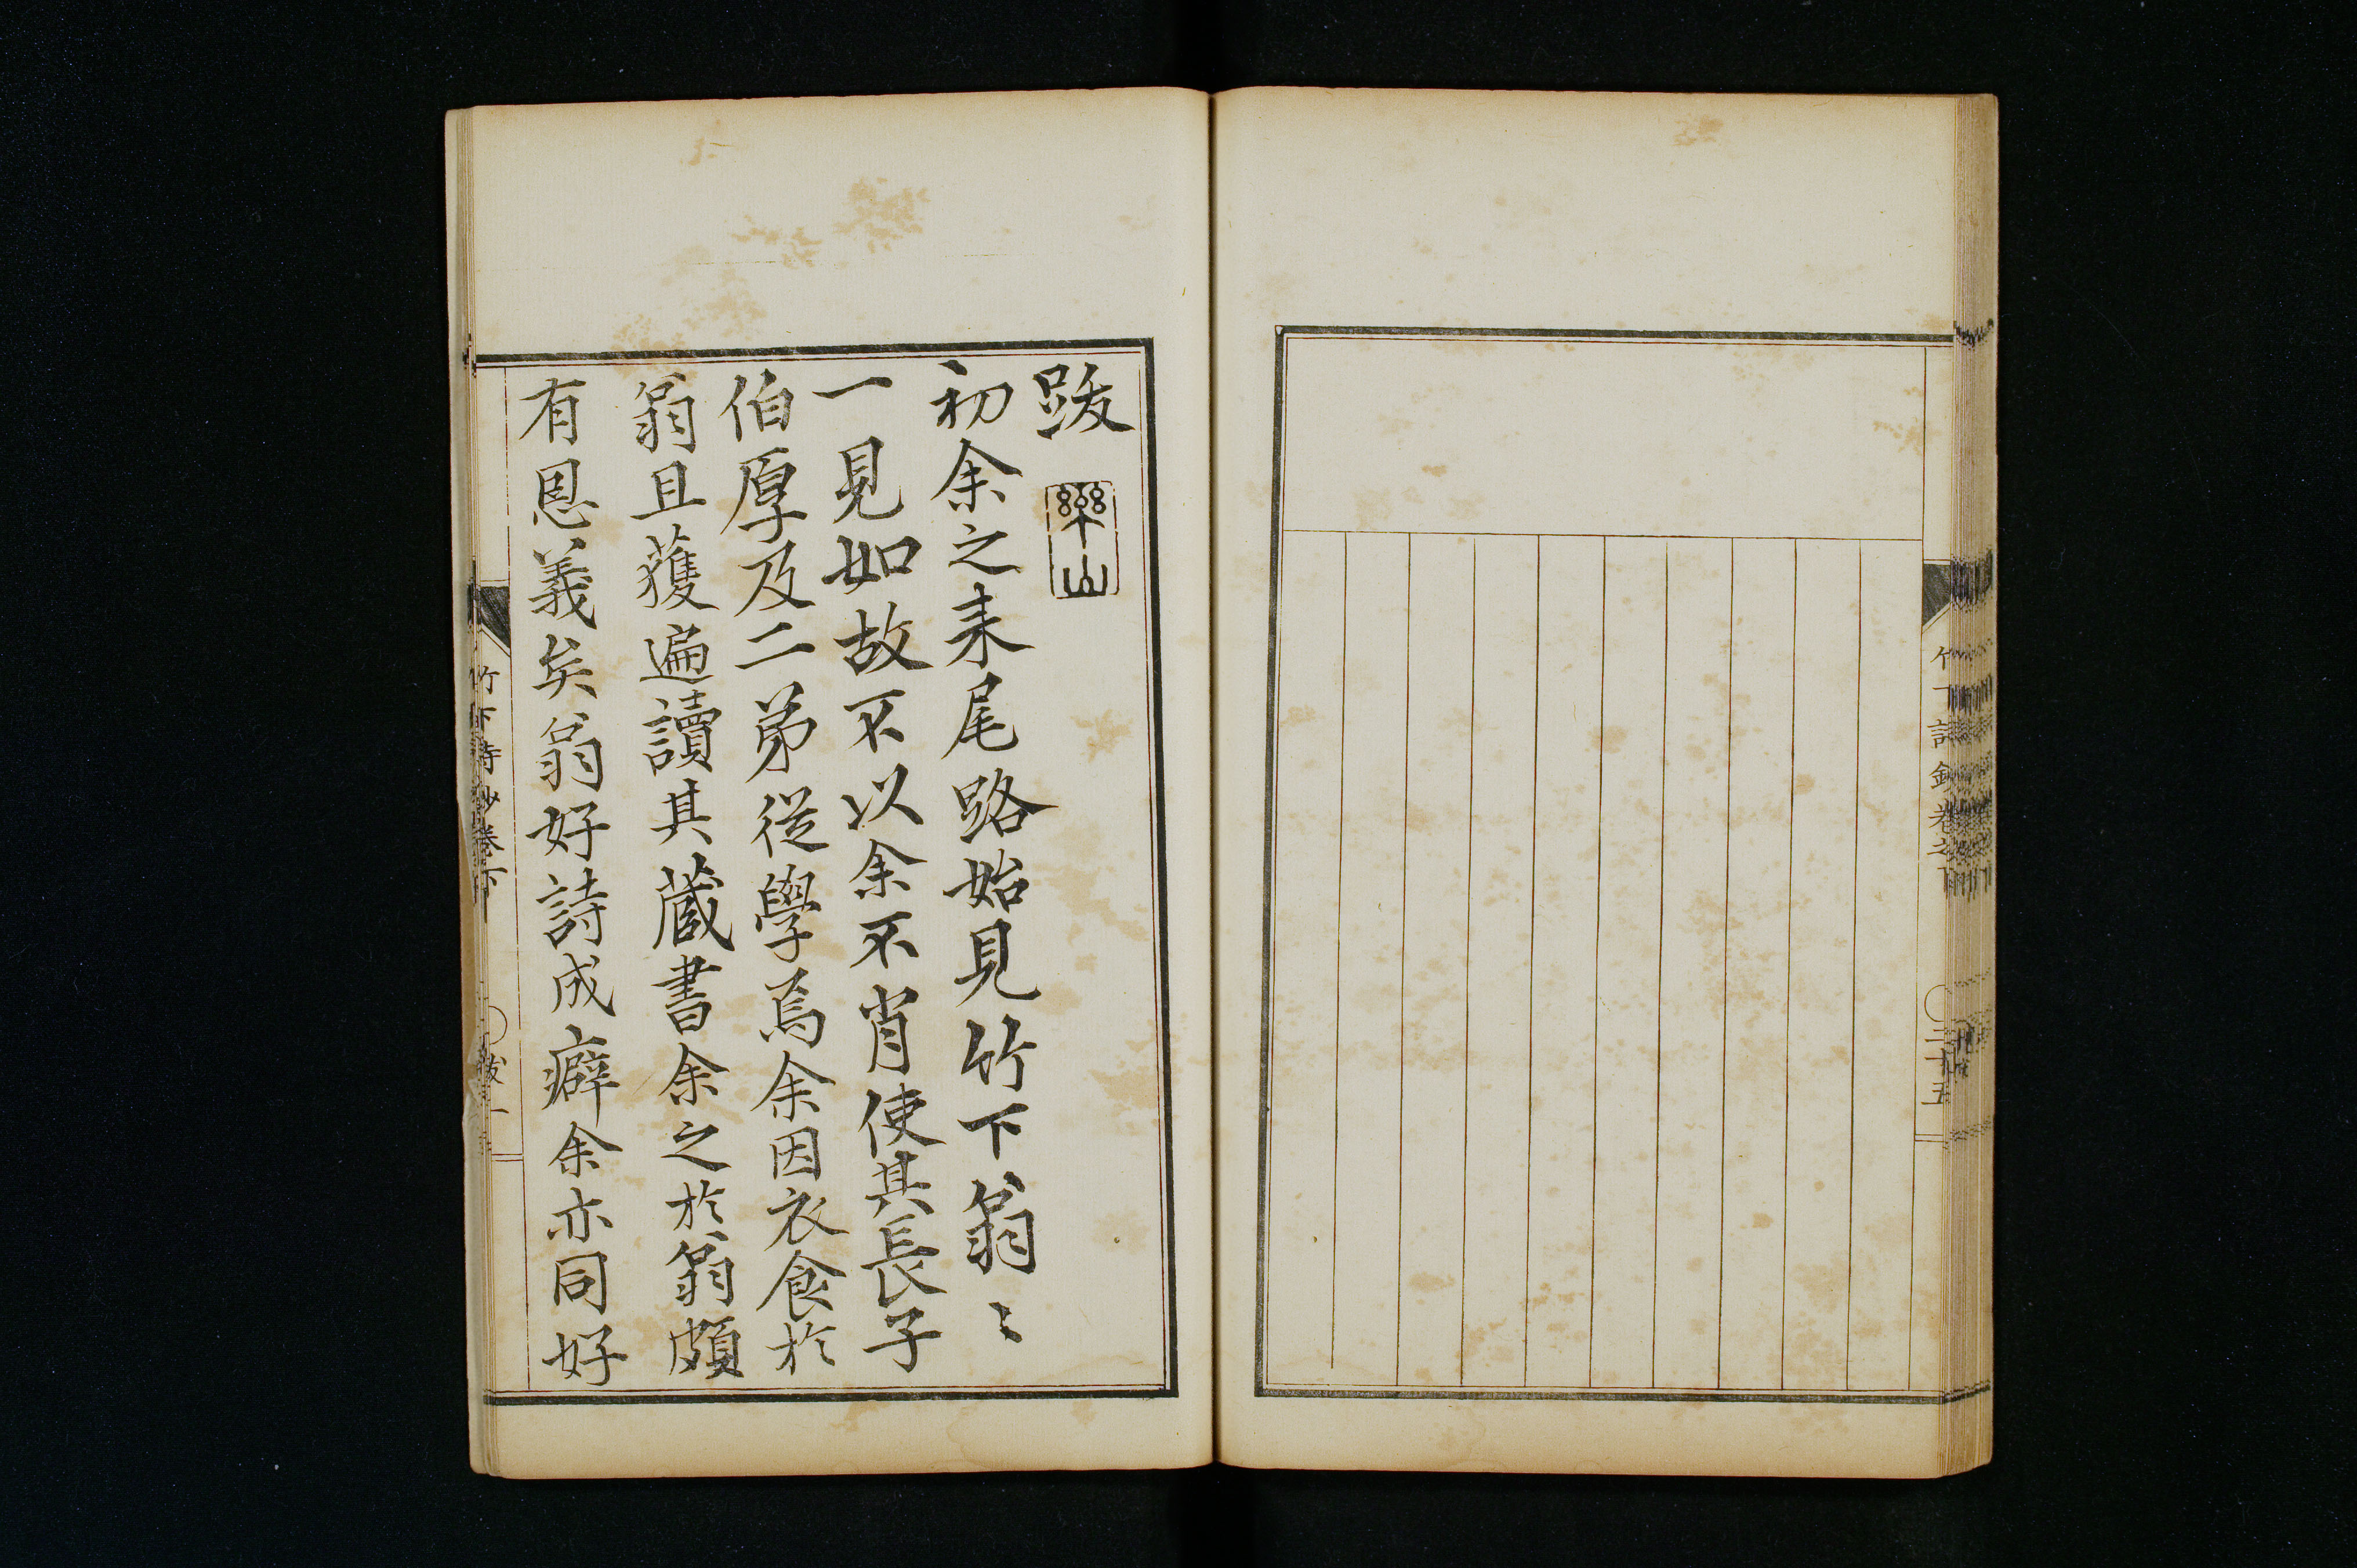 竹下詩鈔卷之下
二十五
跋
樂山
初余之来尾路始見竹下翁〻
一見如故不以余不肖使其長子
伯厚及二弟從學焉余因衣食於
翁且獲遍讀其蔵書余之於翁頗
有恩義矣翁好詩成癖余亦同好
竹下詩鈔卷下
跋一